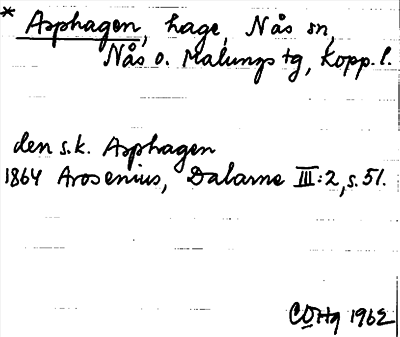 * Asphagen, hage, Nås sn,
Nås o. Malungs tg, Kopp. l.
den s.k. Asphagen
1864 Arosenius, Dalarne III:2, s. 51.
1962